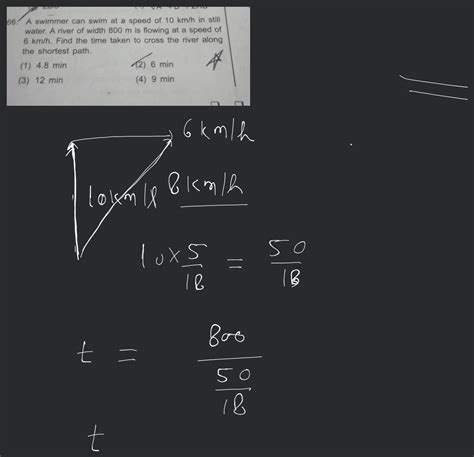 66. A swimmer can swim at a speed of 10 km/h in still
water. A river of width 800 m is flowing at a speed of
6 km/h. Find the time taken to cross the river along
the shortest path.
(1) 4.8 min (2) 6 min
(3) 12 min (4) 9 min
6 km/h
10km/h 8 km/h
10 × 5/18 = 50/18
t = 800/(50/18)
t